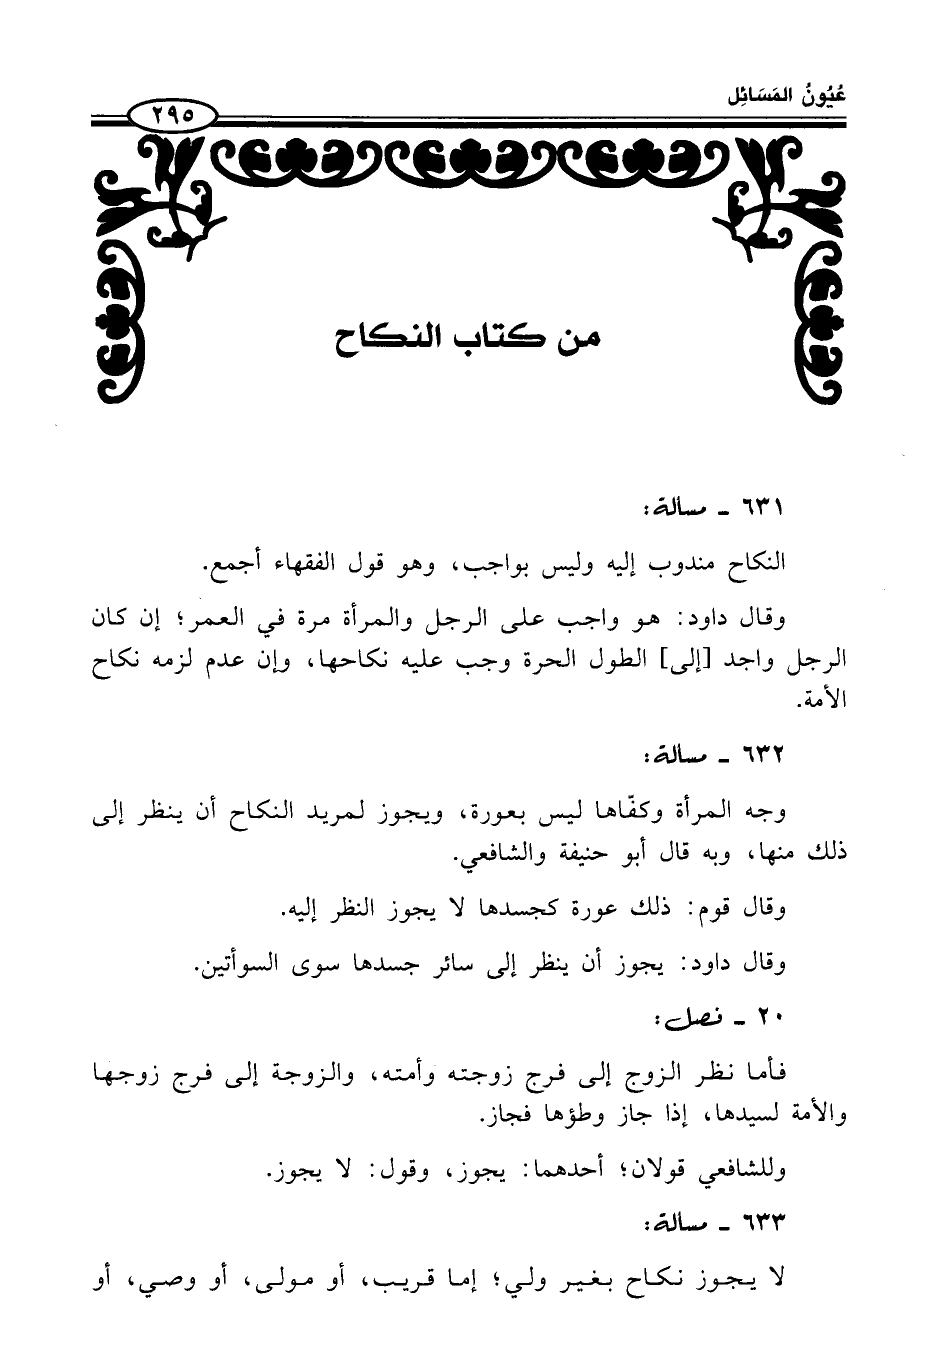 عُيُونُ المَسَائِل
٢٩٥
من كتاب النكاح
٦٣١ - مسألة:
النكاح مندوب إليه وليس بواجب، وهو قول الفقهاء أجمع.
وقال داود: هو واجب على الرجل والمرأة مرة في العمر؛ إن كان
الرجل واجد [إلى] الطول الحرة وجب عليه نكاحها، وإن عدم لزمه نكاح
الأمة.
٦٣٢ - مسألة:
وجه المرأة وكفّاها ليس بعورة، ويجوز لمريد النكاح أن ينظر إلى
ذلك منها، وبه قال أبو حنيفة والشافعي.
وقال قوم: ذلك عورة كجسدها لا يجوز النظر إليه.
وقال داود: يجوز أن ينظر إلى سائر جسدها سوى السوأتين.
٢٠ - فصل:
فأما نظر الزوج إلى فرج زوجته وأمته، والزوجة إلى فرج زوجها
والأمة لسيدها، إذا جاز وطؤها فجاز.
وللشافعي قولان؛ أحدهما: يجوز، وقول: لا يجوز.
٦٣٣ - مسألة:
لا يجوز نكاح بغير ولي؛ إما قريب، أو مولى، أو وصي، أو